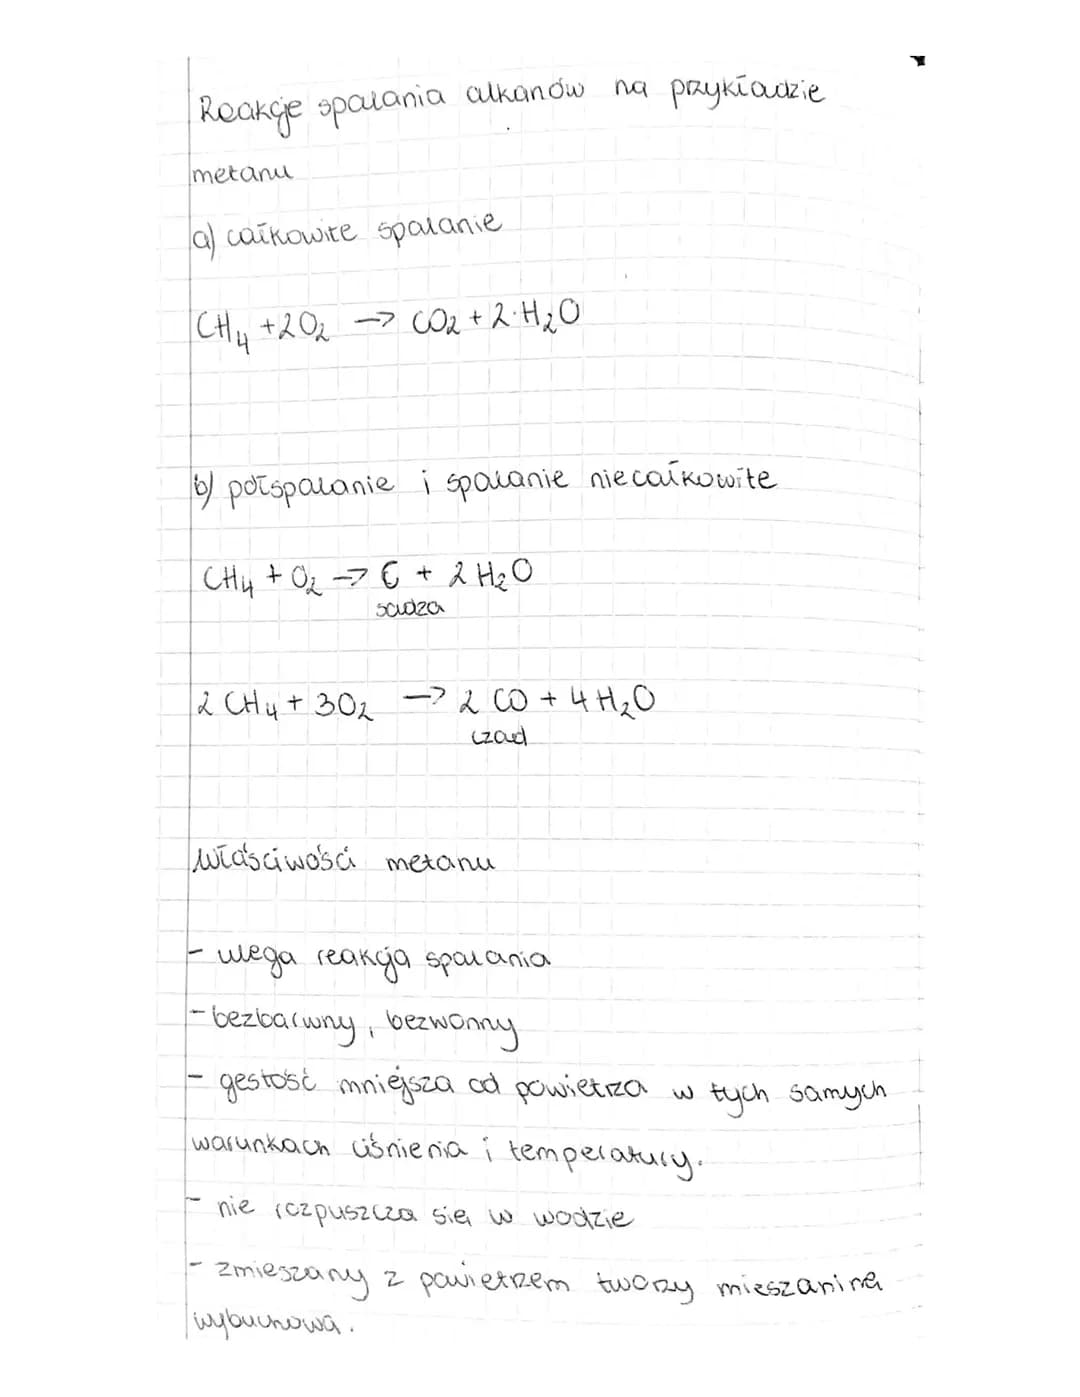 Reakcje spalania alkanów na przykładzie
metanu
a) całkowite spalanie
CH₄ + 2O₂ → CO₂ + 2·H₂O
b) półspalanie i spalanie niecałkowite
CH₄ + O₂ → C + 2 H₂O
sadza
2 CH₄ + 3O₂ → 2 CO + 4 H₂O
czad
Właściwości metanu
- ulega reakcją spalania
- bezbarwny, bezwonny
- gęstość mniejsza od powietrza w tych samych
warunkach ciśnienia i temperatury.
- nie rozpuszcza się w wodzie
- zmieszany z powietrzem tworzy mieszaninę
wybuchową.